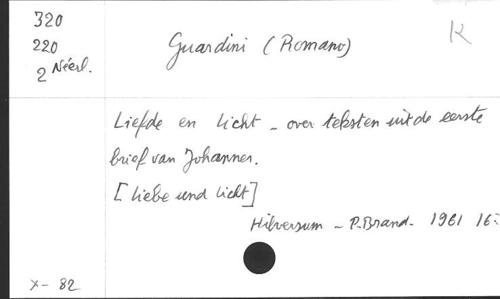 320
220
2 Néerl.
Guardini (Romano)
K
Liefde en licht - over teksten uit de eerste
brief van Johannes.
[Liebe und Licht]
Hilversum - P. Brand - 1961 16:
X - 82